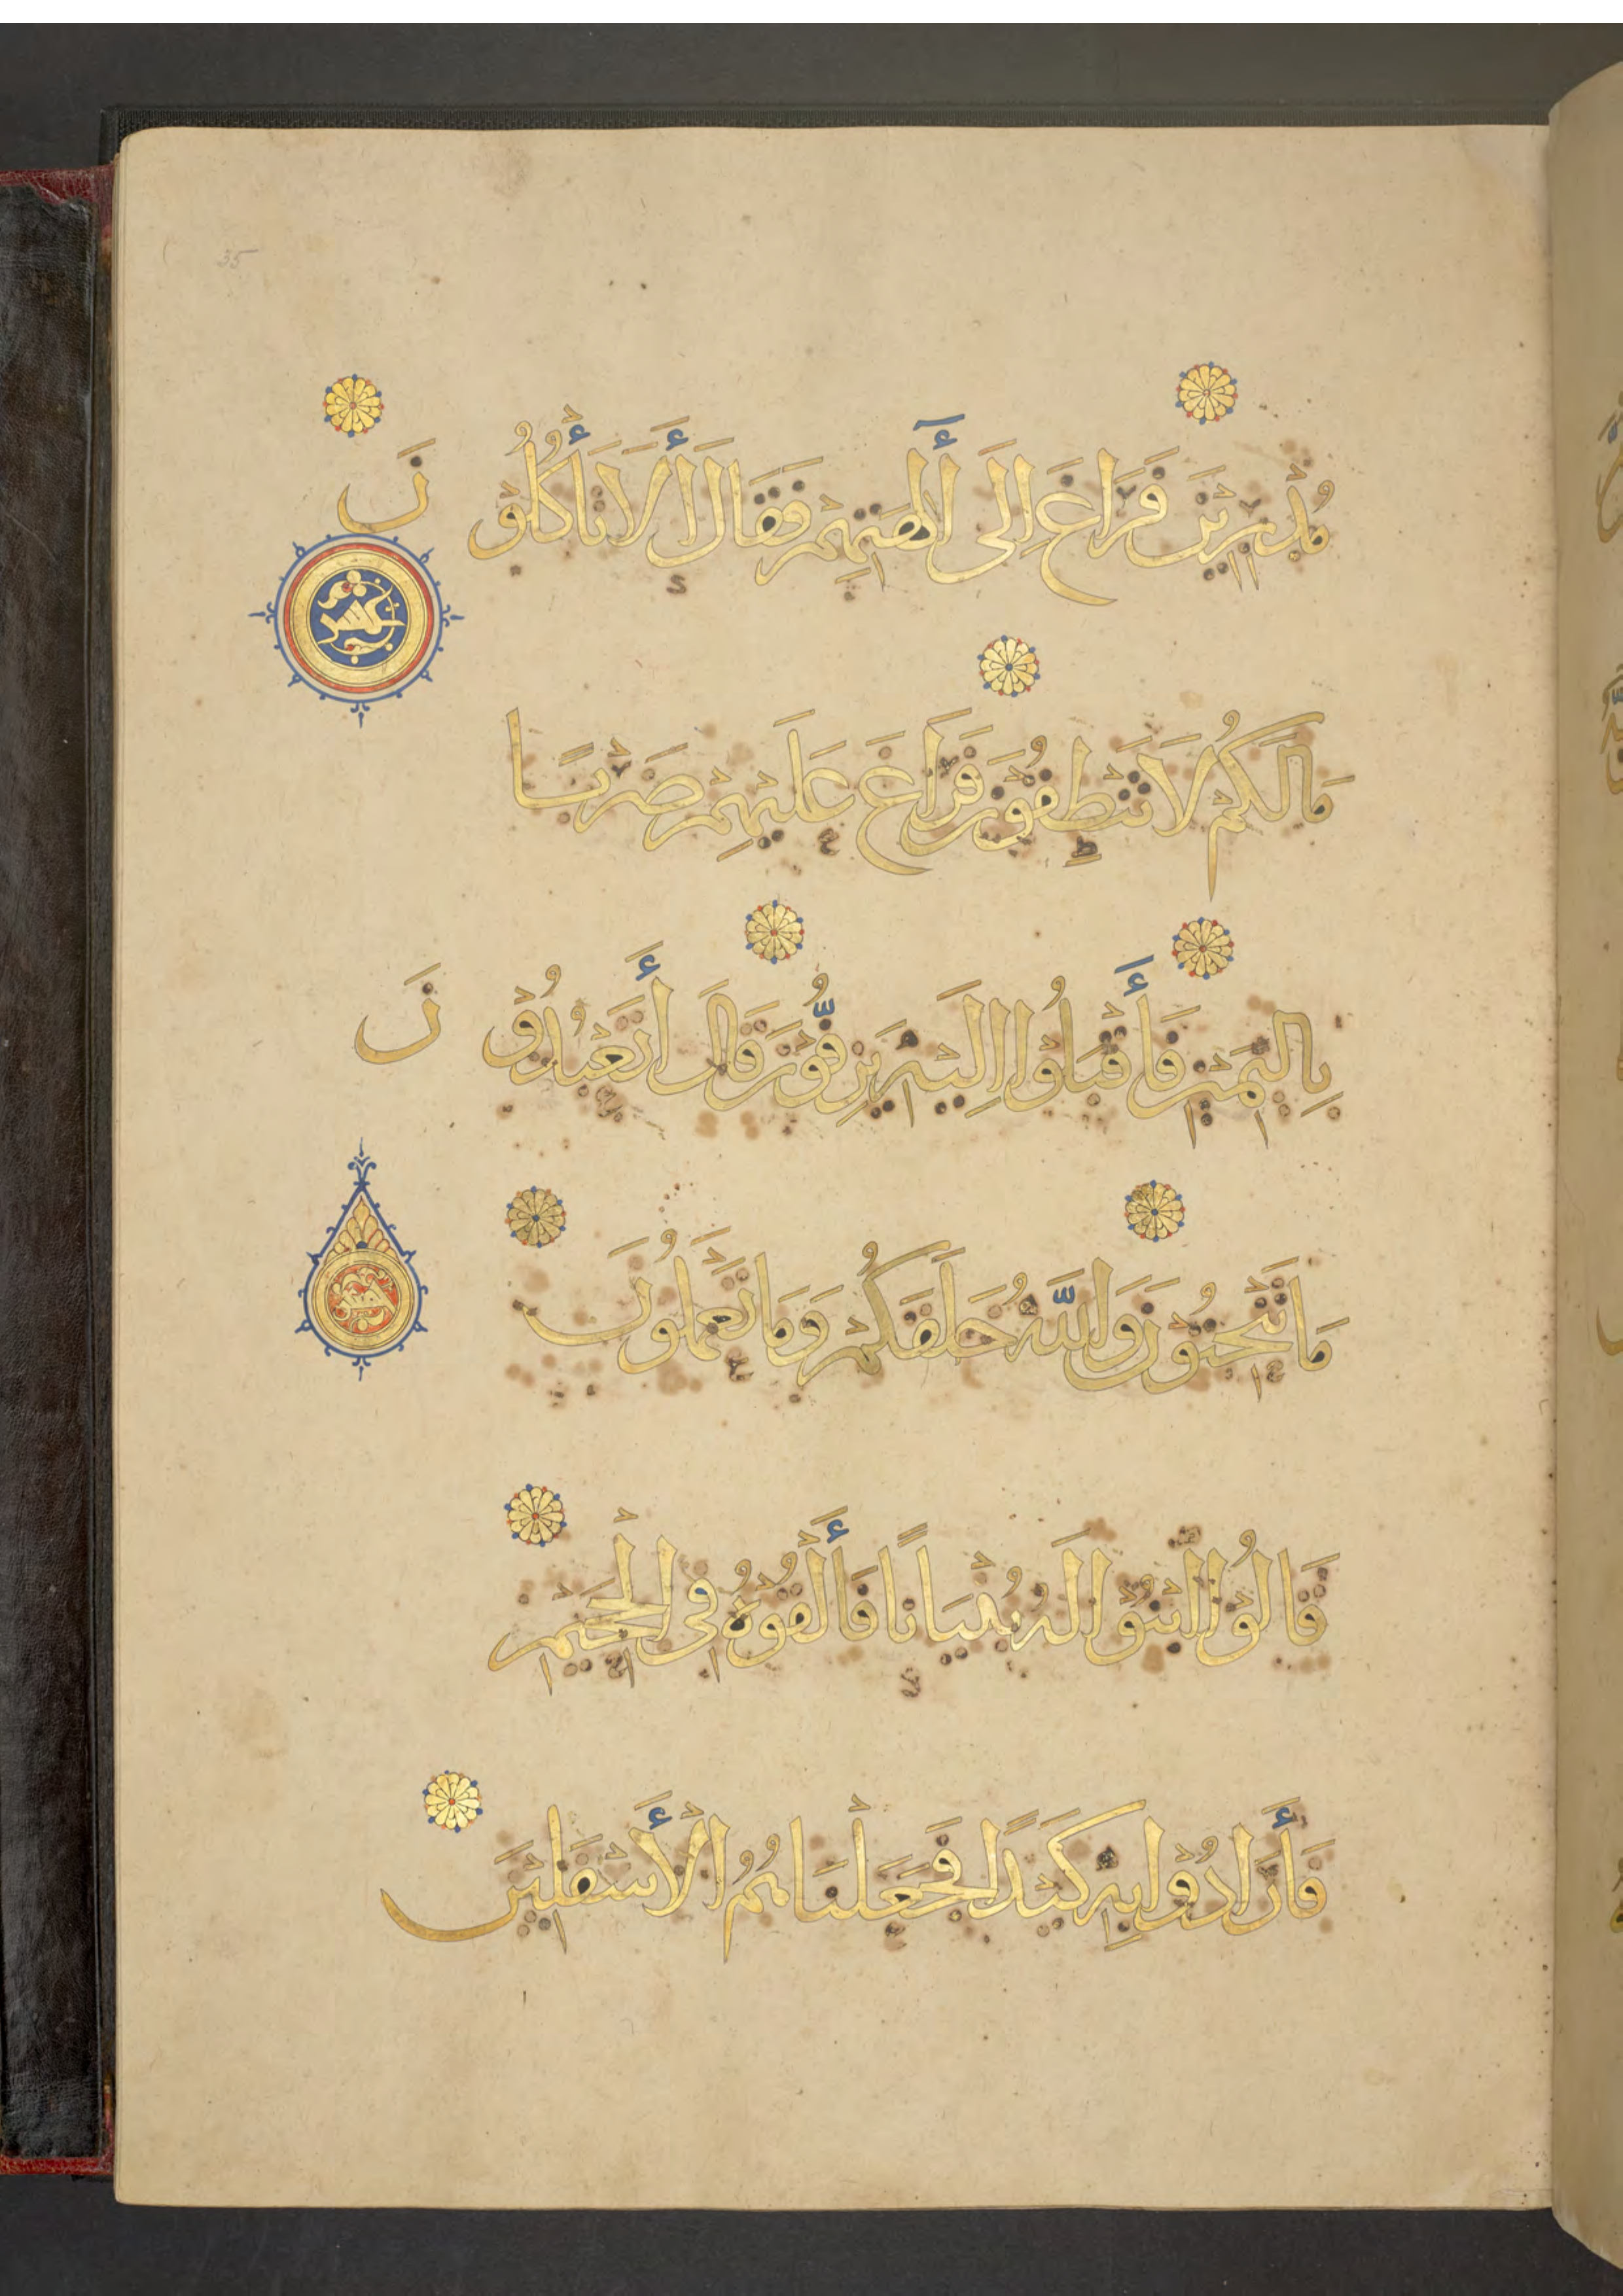 35
مُدْبِرِيْنَ فَرَاغَ اِلَى أٰلِهَتِهِمْ فَقَالَ أَلَا تَأْكُلُوْنَ
مَا لَكُمْ لَا تَنْطِقُوْنَ فَرَاغَ عَلَيْهِمْ ضَرْبًا
بِالْيَمِيْنِ فَأَقْبَلُوْا اِلَيْهِ يَزِفُّوْنَ قَالَ أَتَعْبُدُوْنَ
مَا تَنْحِتُوْنَ وَاللّٰهُ خَلَقَكُمْ وَمَا تَعْمَلُوْنَ
قَالُوْا ابْنُوْا لَهُ بُنْيَانًا فَأَلْقُوْهُ فِي الْجَحِيْمِ
فَأَرَادُوْا بِهِ كَيْدًا فَجَعَلْنَاهُمُ الْأَسْفَلِيْنَ